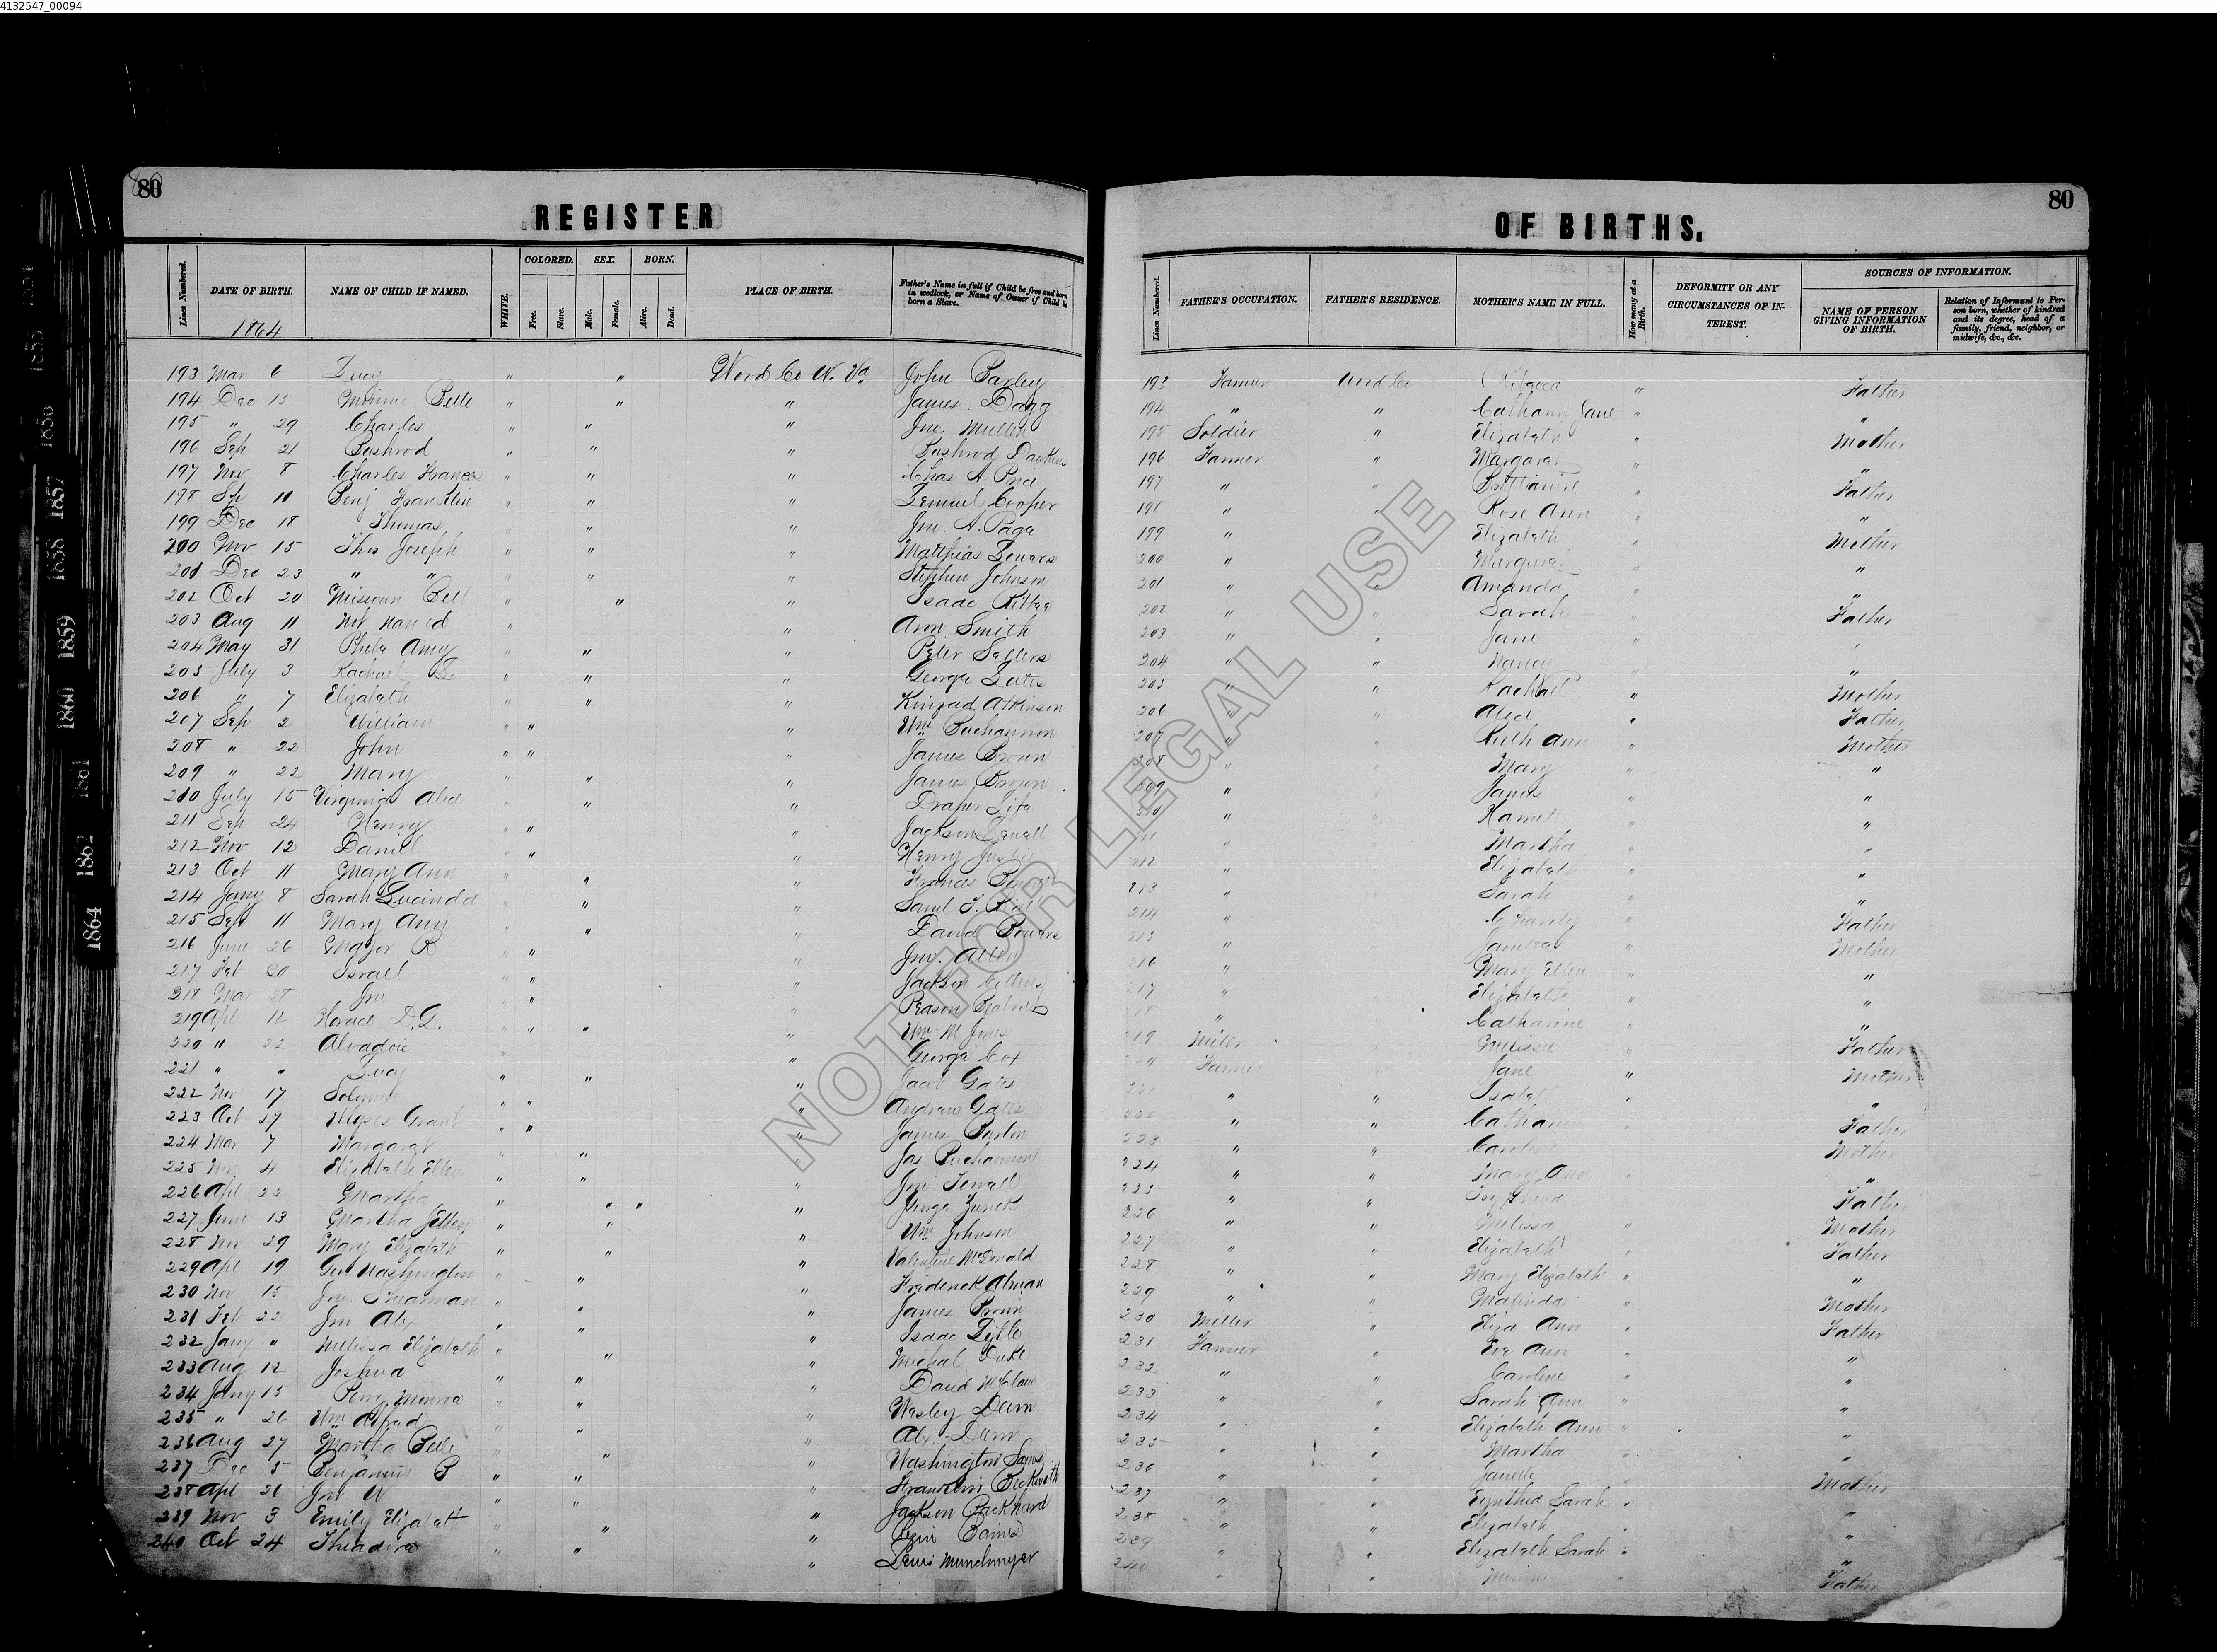 4132547_00094
80
80
REGISTER
OF BIRTHS.
Lines Numbered.
DATE OF BIRTH.
1864
NAME OF CHILD IF NAMED.
WHITE.
COLORED.
Free.
Slave.
SEX.
Male.
Female.
BORN.
Alive.
Dead.
PLACE OF BIRTH.
Father's Name in full if Child be free and born in wedlock, or Name of Owner if Child is born a Slave.
Lines Numbered.
FATHER'S OCCUPATION.
FATHER'S RESIDENCE.
MOTHER'S NAME IN FULL.
How many at a Birth.
DEFORMITY OR ANY CIRCUMSTANCES OF INTEREST.
SOURCES OF INFORMATION.
NAME OF PERSON GIVING INFORMATION OF BIRTH.
Relation of Informant to Person born, whether of kindred and its degree, head of a family, friend, neighbor, or midwife, &c., &c.
193 Mar 6 Lucy " " Wood Co W. Va John Barley 193 Farmer Wood Co Rebecca " Father
194 Dec 15 Minnie Belle " " " James Dagg 194 " " Jane " "
195 " 29 Charles " " " Jno. Mullen 195 Soldier " Elizabeth " Mother
196 Sep 21 Bushrod " " " Bushrod Dawkins 196 Farmer " Margaret " "
197 Nov 8 Charles Frances " " " Chas A 197 " " " Father
198 Sep 11 Benj Franklin " " " Lemuel Cooper 198 " " Rose Ann " "
199 Dec 18 Thomas " " " Jno. A. Page 199 " " Elizabeth " Mother
200 Nov 15 Thos Joseph " " " Matthias Bowers 200 " " Margaret " "
201 Dec 23 " " " " " Stephen Johnson 201 " " Amanda " "
202 Oct 20 Missouri Bell " " " Isaac 202 " " Sarah " Father
203 Aug 11 Not named " " Ann Smith 203 " " Jane "
204 May 31 Pheba Amy " " " Peter Sellers 204 " " Nancy " "
205 July 3 Rachael B. " " " George Lutes 205 " " Rachael " Mother
206 " 7 Elizabeth " " " Kinzad Atkinson 206 " " Alice " Father
207 Sep 2 William " " " Wm Buchannon 207 " " Ruth Ann " Mother
208 " 22 John " " " James Brown 208 " " Mary " "
209 " 22 Mary " " " James Brown 209 " " " "
210 July 15 Virginia Alice " " " Draper 210 " " " "
211 Sep 24 Henry " " " Jackson Sewell 211 " " Martha " "
212 Nov 12 Daniel " " " Henry 212 " " Elizabeth " "
213 Oct 11 Mary Ann " " " Frances 213 " " Sarah " "
214 Jany 8 Sarah Lucinda " " " Saml T. 214 " Charity " Father
215 Sept 11 Mary Ann " " " David Bowers 215 " " Mother
216 June 26 Major R " " " Jno. Allen 216 " Mary Ellen " "
217 Feb 20 Israel " " " Jackson 217 " Elizabeth " "
218 Mar 28 Jno " " " 218 " Catharine " "
219 Apl 12 Horace D.G. " " " " Wm M Jones 219 Miller Melissa " Father
220 " 22 " " George Cox 220 Farmer Jane " Mother
221 " " Lucy " " " Jacob Gates 221 " " Isabel " "
222 Nov 17 Solomon " " " Andrew Gates 222 " " " Father
223 Oct 27 Ulyses Grant " " " James Barton 223 " " Caroline " Mother
224 Mar 7 Margaret " " Jas. Buchannon 224 " " Mary Ann " "
225 Nov 4 Elizabeth Ellen " " " Jno. Sewell 225 " " Father
226 Apl 22 Martha " " " " 226 " " Melissa " Mother
227 June 13 Martha Ellen " " " Wm Johnson 227 " " Elizabeth " Father
228 Nov 29 Mary Elizabeth " " " Valentine McDonald 228 " " Mary Elizabeth " "
229 Apl 19 Geo. Washington " " " Frederick 229 " " Malinda " Mother
230 Nov 15 Jno. Shearman " " " James 230 Miller " Eliza Ann " Father
231 Feb 22 Jno Alx " " " Isaac Lytle 231 Farmer " Eve Ann " "
232 Jany " Melissa Elizabeth " " " Michal Duke 232 " " Caroline " "
233 Aug 12 Joshua " " " David 233 " " Sarah Ann " "
234 Jany 15 Perry Monroe " " " Wesley 234 " " Elizabeth Ann " "
235 " 26 Wm Alfred " " " Alx. 235 " " Martha " "
236 Aug 27 Martha Belle " " " Washington Sams 236 " " " Mother
237 Dec 5 Benjamin B " " " Franklin Beckwith 237 " " Cynthia Sarah " "
238 Apl 21 W " " " Jackson Packhard 238 " " Elizabeth " "
239 Nov 3 Emily Elizabeth " " " 239 " " Elizabeth Sarah " "
240 Oct 24 Theadira " " " Lewis Munchmyer 240 " " " Father
1857
1858
1859
1860
1861
1862
1864
NOT FOR LEGAL USE